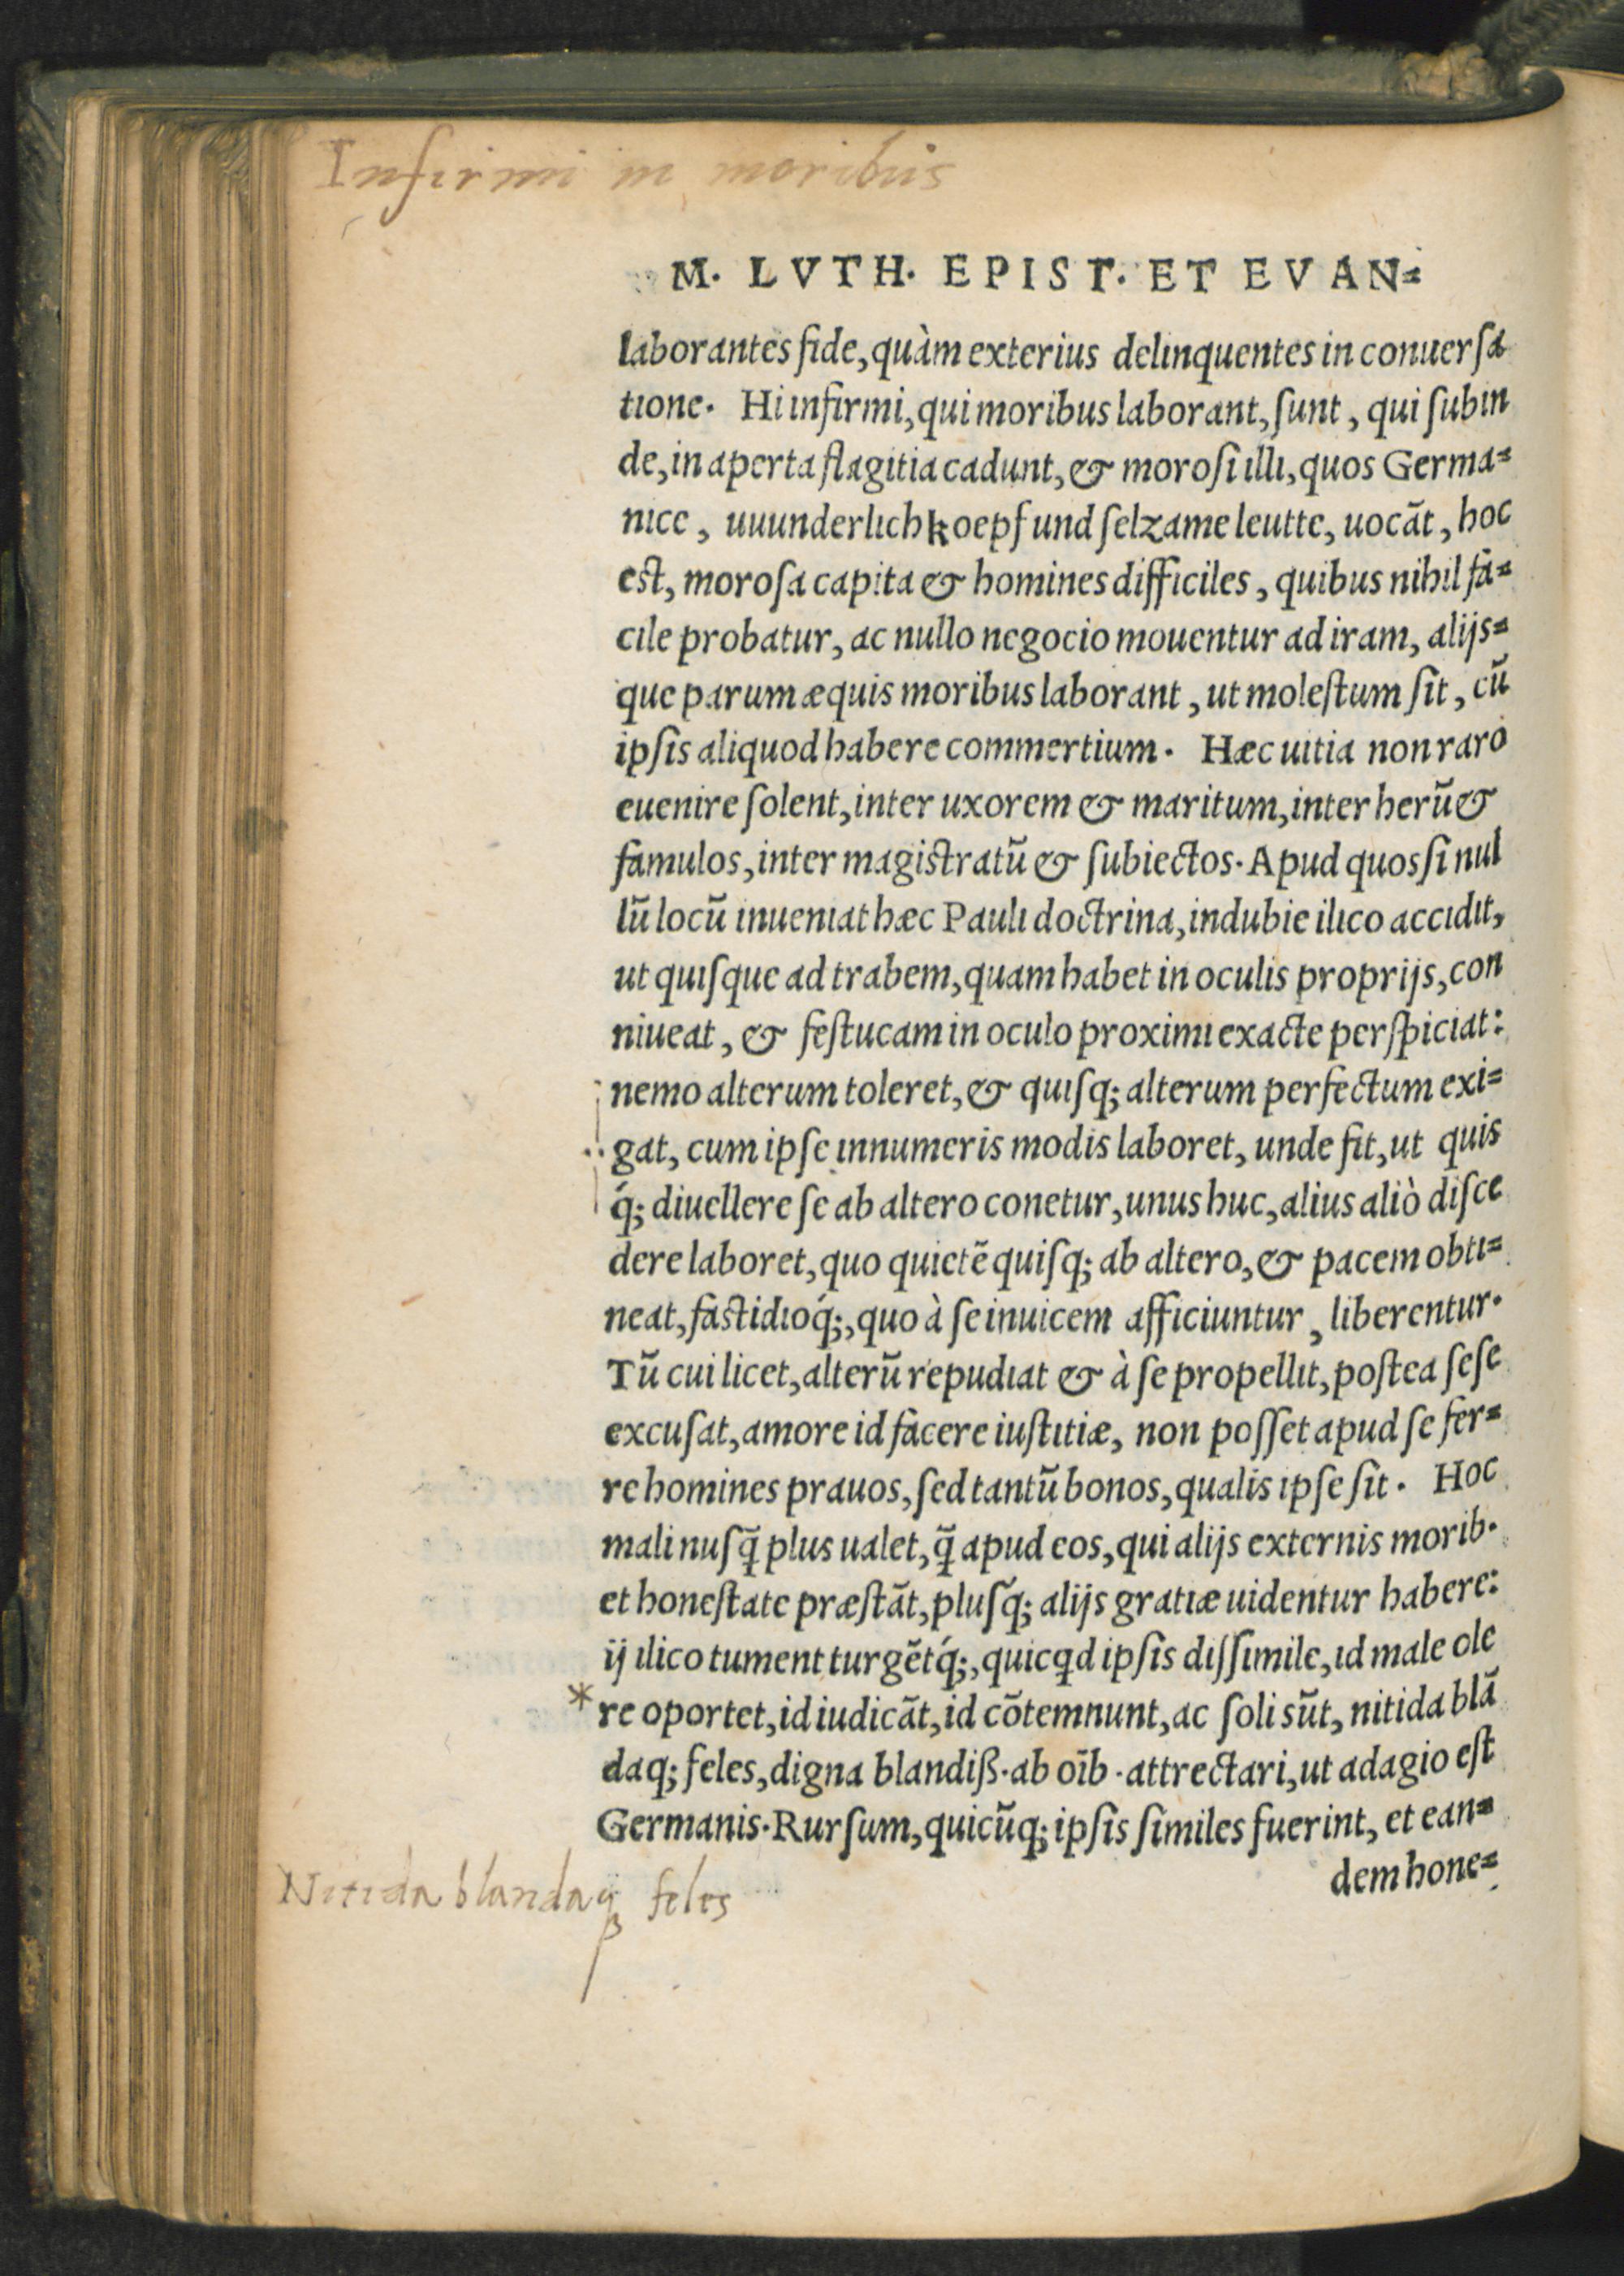 Infirmi in moribus
M. LVTH. EPIST. ET EVAN=
laborantes fide, quàm exterius delinquentes in conuerſa
tione. Hi infirmi, qui moribus laborant, ſunt, qui ſubin
de, in aperta flagitia cadunt, & moroſi illi, quos Germa=
nice, uuunderlich koepf und ſelzame leutte, uocāt, hoc
est, moroſa capita & homines difficiles, quibus nihil fa=
cile probatur, ac nullo negocio mouentur ad iram, alijs=
que parum æquis moribus laborant, ut moleſtum ſit, cū
ipſis aliquod habere commertium. Hæc uitia non raro
euenire ſolent, inter uxorem & maritum, inter herū &
famulos, inter magistratū & ſubiectos. Apud quos ſi nul
lū locū inueniat hæc Pauli doctrina, indubie ilico accidit,
ut quiſque ad trabem, quam habet in oculis proprijs, con
niueat, & feſtucam in oculo proximi exacte perſpiciat:
nemo alterum toleret, & quiſq; alterum perfectum exi=
gat, cum ipſe innumeris modis laboret, unde fit, ut quis
q́; diuellere ſe ab altero conetur, unus huc, alius aliò diſce
dere laboret, quo quietē quiſq; ab altero, & pacem obti=
neat, fastidioq́;, quo à ſe inuicem afficiuntur, liberentur.
Tū cui licet, alterū repudiat & à ſe propellit, poſtea ſeſe
excuſat, amore id facere iuſtitiæ, non poſſet apud ſe fer=
re homines prauos, ſed tantū bonos, qualis ipſe ſit. Hoc
mali nuſq̄ plus ualet, q̄ apud eos, qui alijs externis morib.
et honeſtate præſtāt, pluſq́; alijs gratiæ uidentur habere:
ij ilico tument turgētq́;, quicqd ipſis diſſimile, id male ole
* re oportet, id iudicāt, id cōtemnunt, ac ſoli sūt, nitida blā
daq; feles, digna blandiß. ab oīb. attrectari, ut adagio eſt
Germanis. Rurſum, quicūq; ipſis ſimiles fuerint, et ean=
dem hone=
Nitida blandaq; feles